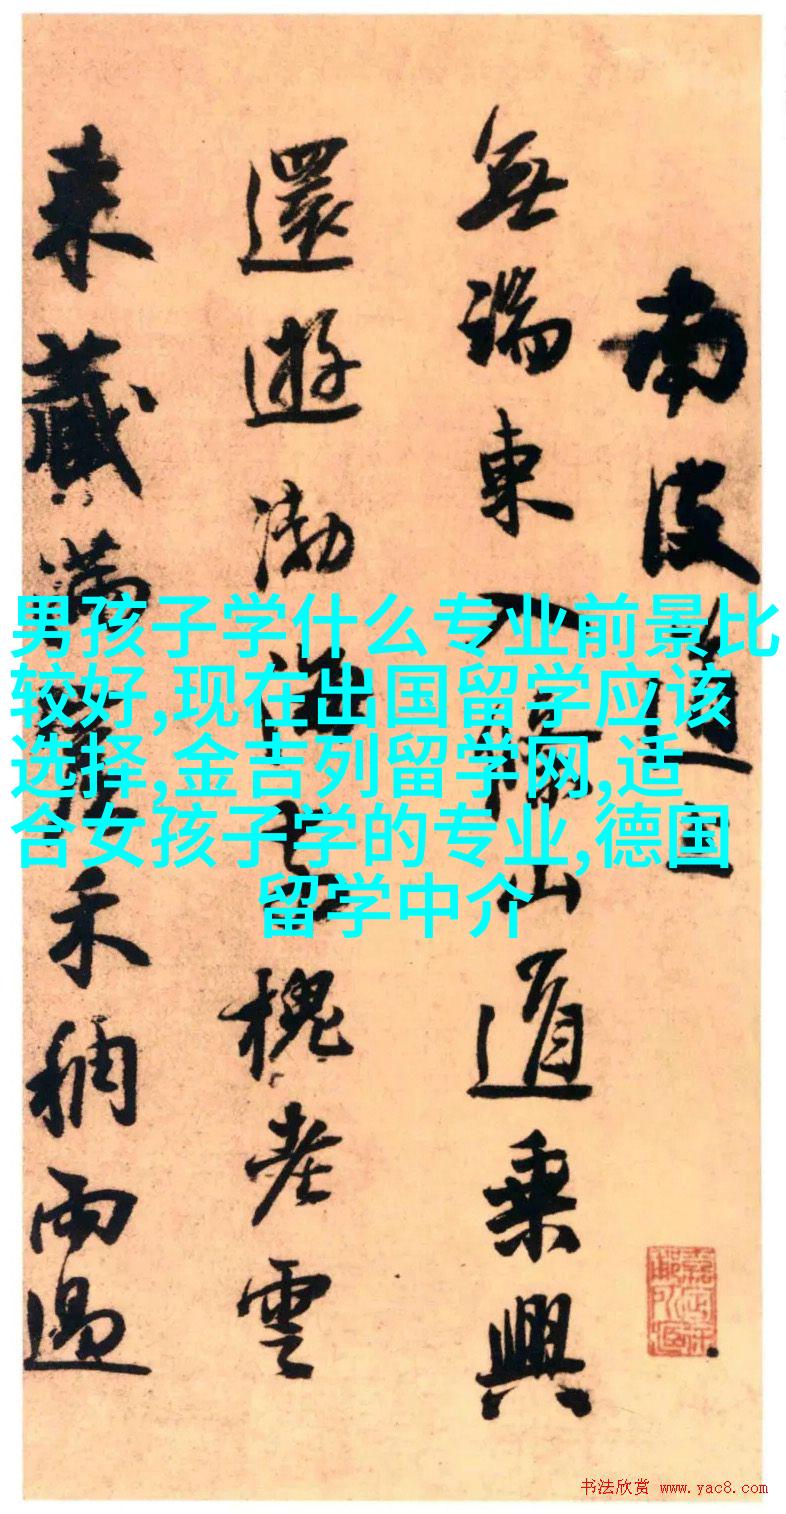 南皮道
無端東入山道乘興
還遊渤海槐老雲
來藏滿禾稠雨過
男孩子学什么专业前景比
较好,现在出国留学应该
选择,金吉列留学网,适
合女孩子学的专业,德国
留学中介
书法欣赏 www.yac8.com